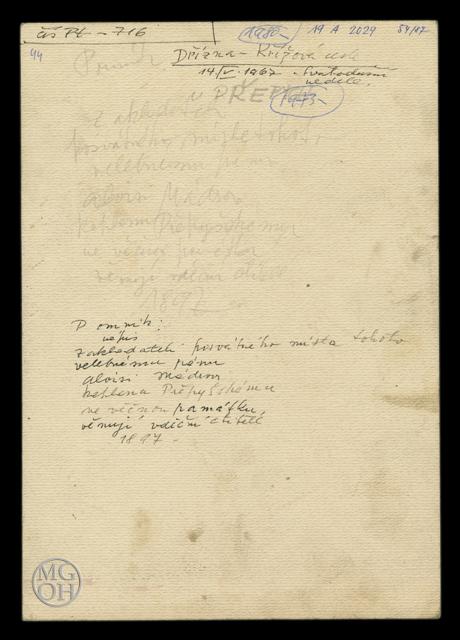 čs Pt - 716
1980- 19 A 2029 54/17
44
Pomník Držkna - Křížová cesta
14/V. 1967 - Svatodušní
neděle.
U PŘEPYCH
1973-
zakladateli
posvátného místa tohoto
velebnému pánu
aloisi Mádrovi
kaplanu Přepyšskému
na věčnou památku
věnují vděční ctitelé
1897
Pomník:
nápis
zakladateli posvátného místa tohoto
velebnému pánu
aloisi Mádrovi
kaplanu Přepyšskému
na věčnou památku,
věnují vděční ctitelé
1897 -
MG
OH